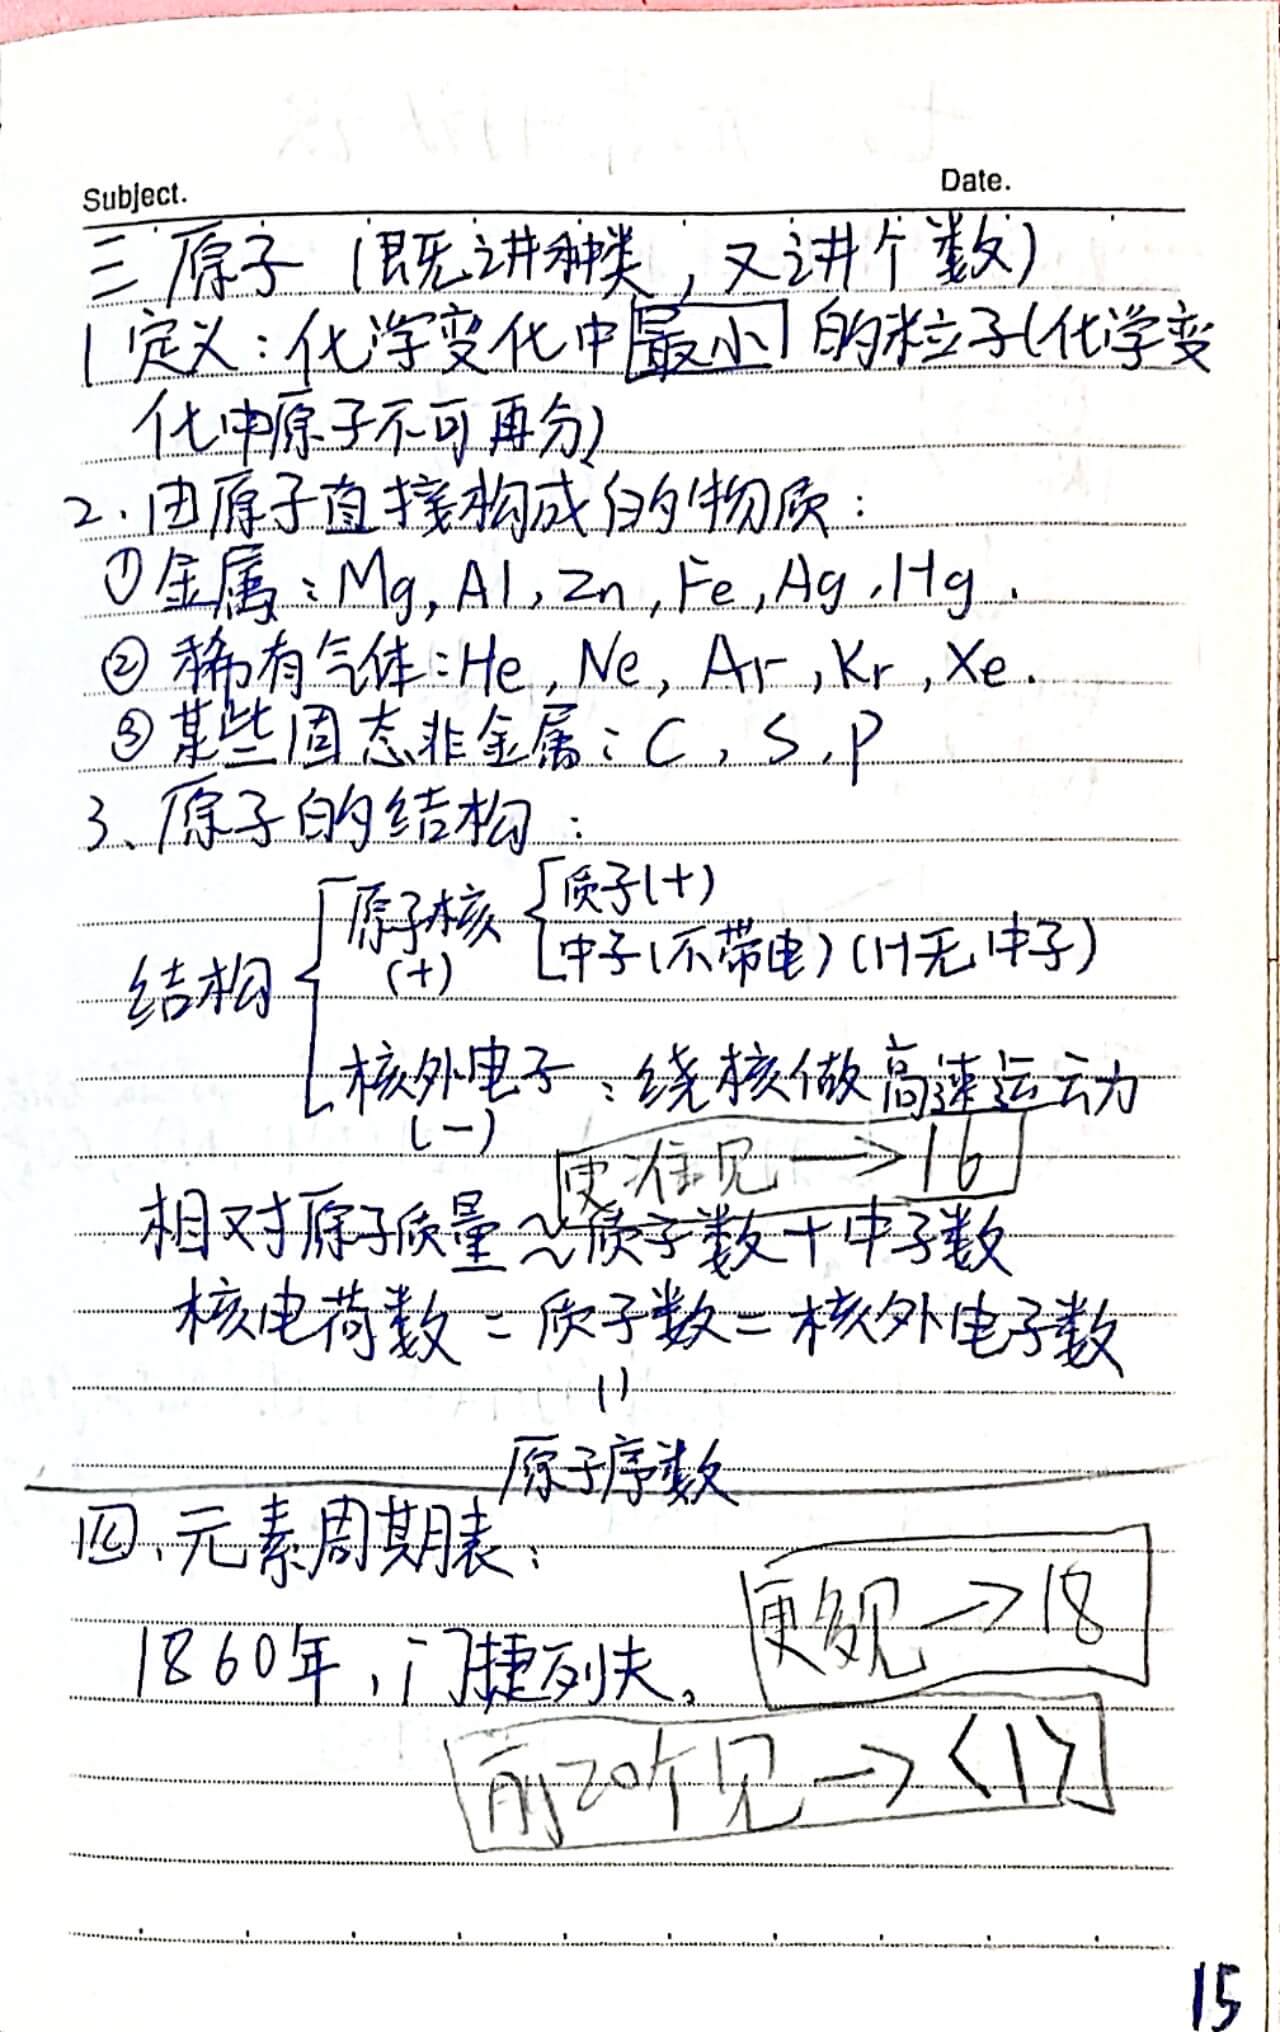 Subject. Date.
三 原子（既讲种类，又讲个数）
1 定义：化学变化中最小的粒子（化学变
化中原子不可再分）
2、由原子直接构成的物质：
①金属：Mg, Al, Zn, Fe, Ag, Hg.
②稀有气体：He, Ne, Ar, Kr, Xe.
③某些固态非金属：C, S, P
3、原子的结构：
质子(+)
原子核
中子(不带电)(H无中子)
(+)
结构
核外电子：绕核做高速运动
(-)
更准见→16
相对原子质量≈质子数+中子数
核电荷数=质子数=核外电子数
=
原子序数
四、元素周期表：
更多见→18
1860年，门捷列夫。
前20个见→〈1〉
15